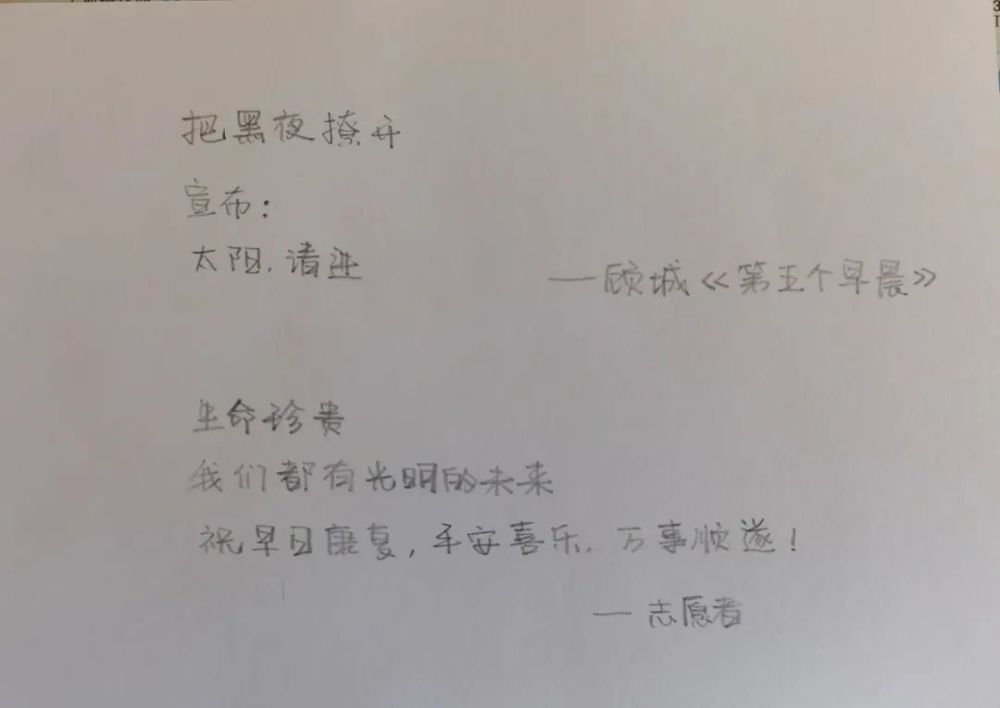 把黑夜撩开
宣布：
太阳，请进
——顾城《第五个早晨》
生命珍贵
我们都有光明的未来
祝早日康复，平安喜乐，万事顺遂！
——志愿者